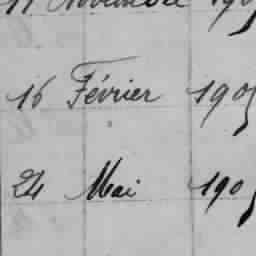 Novembre
16 Février 190
24 Mai 190